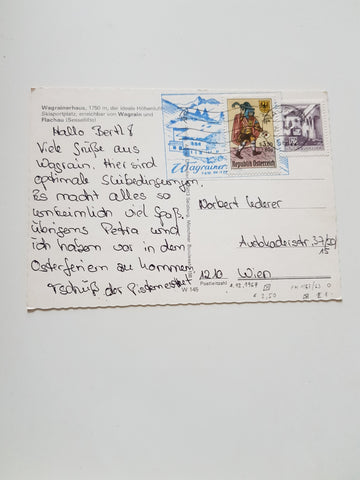 Wagrainerhaus, 1750 m, der ideale Höhenluft
Skisportplatz, erreichbar von Wagrain und
Flachau (Sessellifte)
Hallo Bertl!
Viele Grüße aus
Wagrain. Hier sind
optimale Skibedingungen.
Es macht alles so
unheimlich viel Spaß.
Übrigens Petra und
ich haben vor in den
Osterferien zu kommen
Tschüß der Pistenschreck
Wagrain
Republik Österreich
Norbert Lederer
37/20/
15
1210 Wien
Postleitzahl
W 145
4.12.1967
€ 2,50